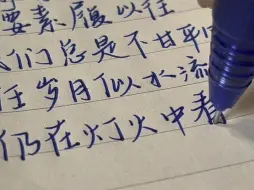 要素履以往
们总是不甘平
任岁月似水流
仍在灯火中看